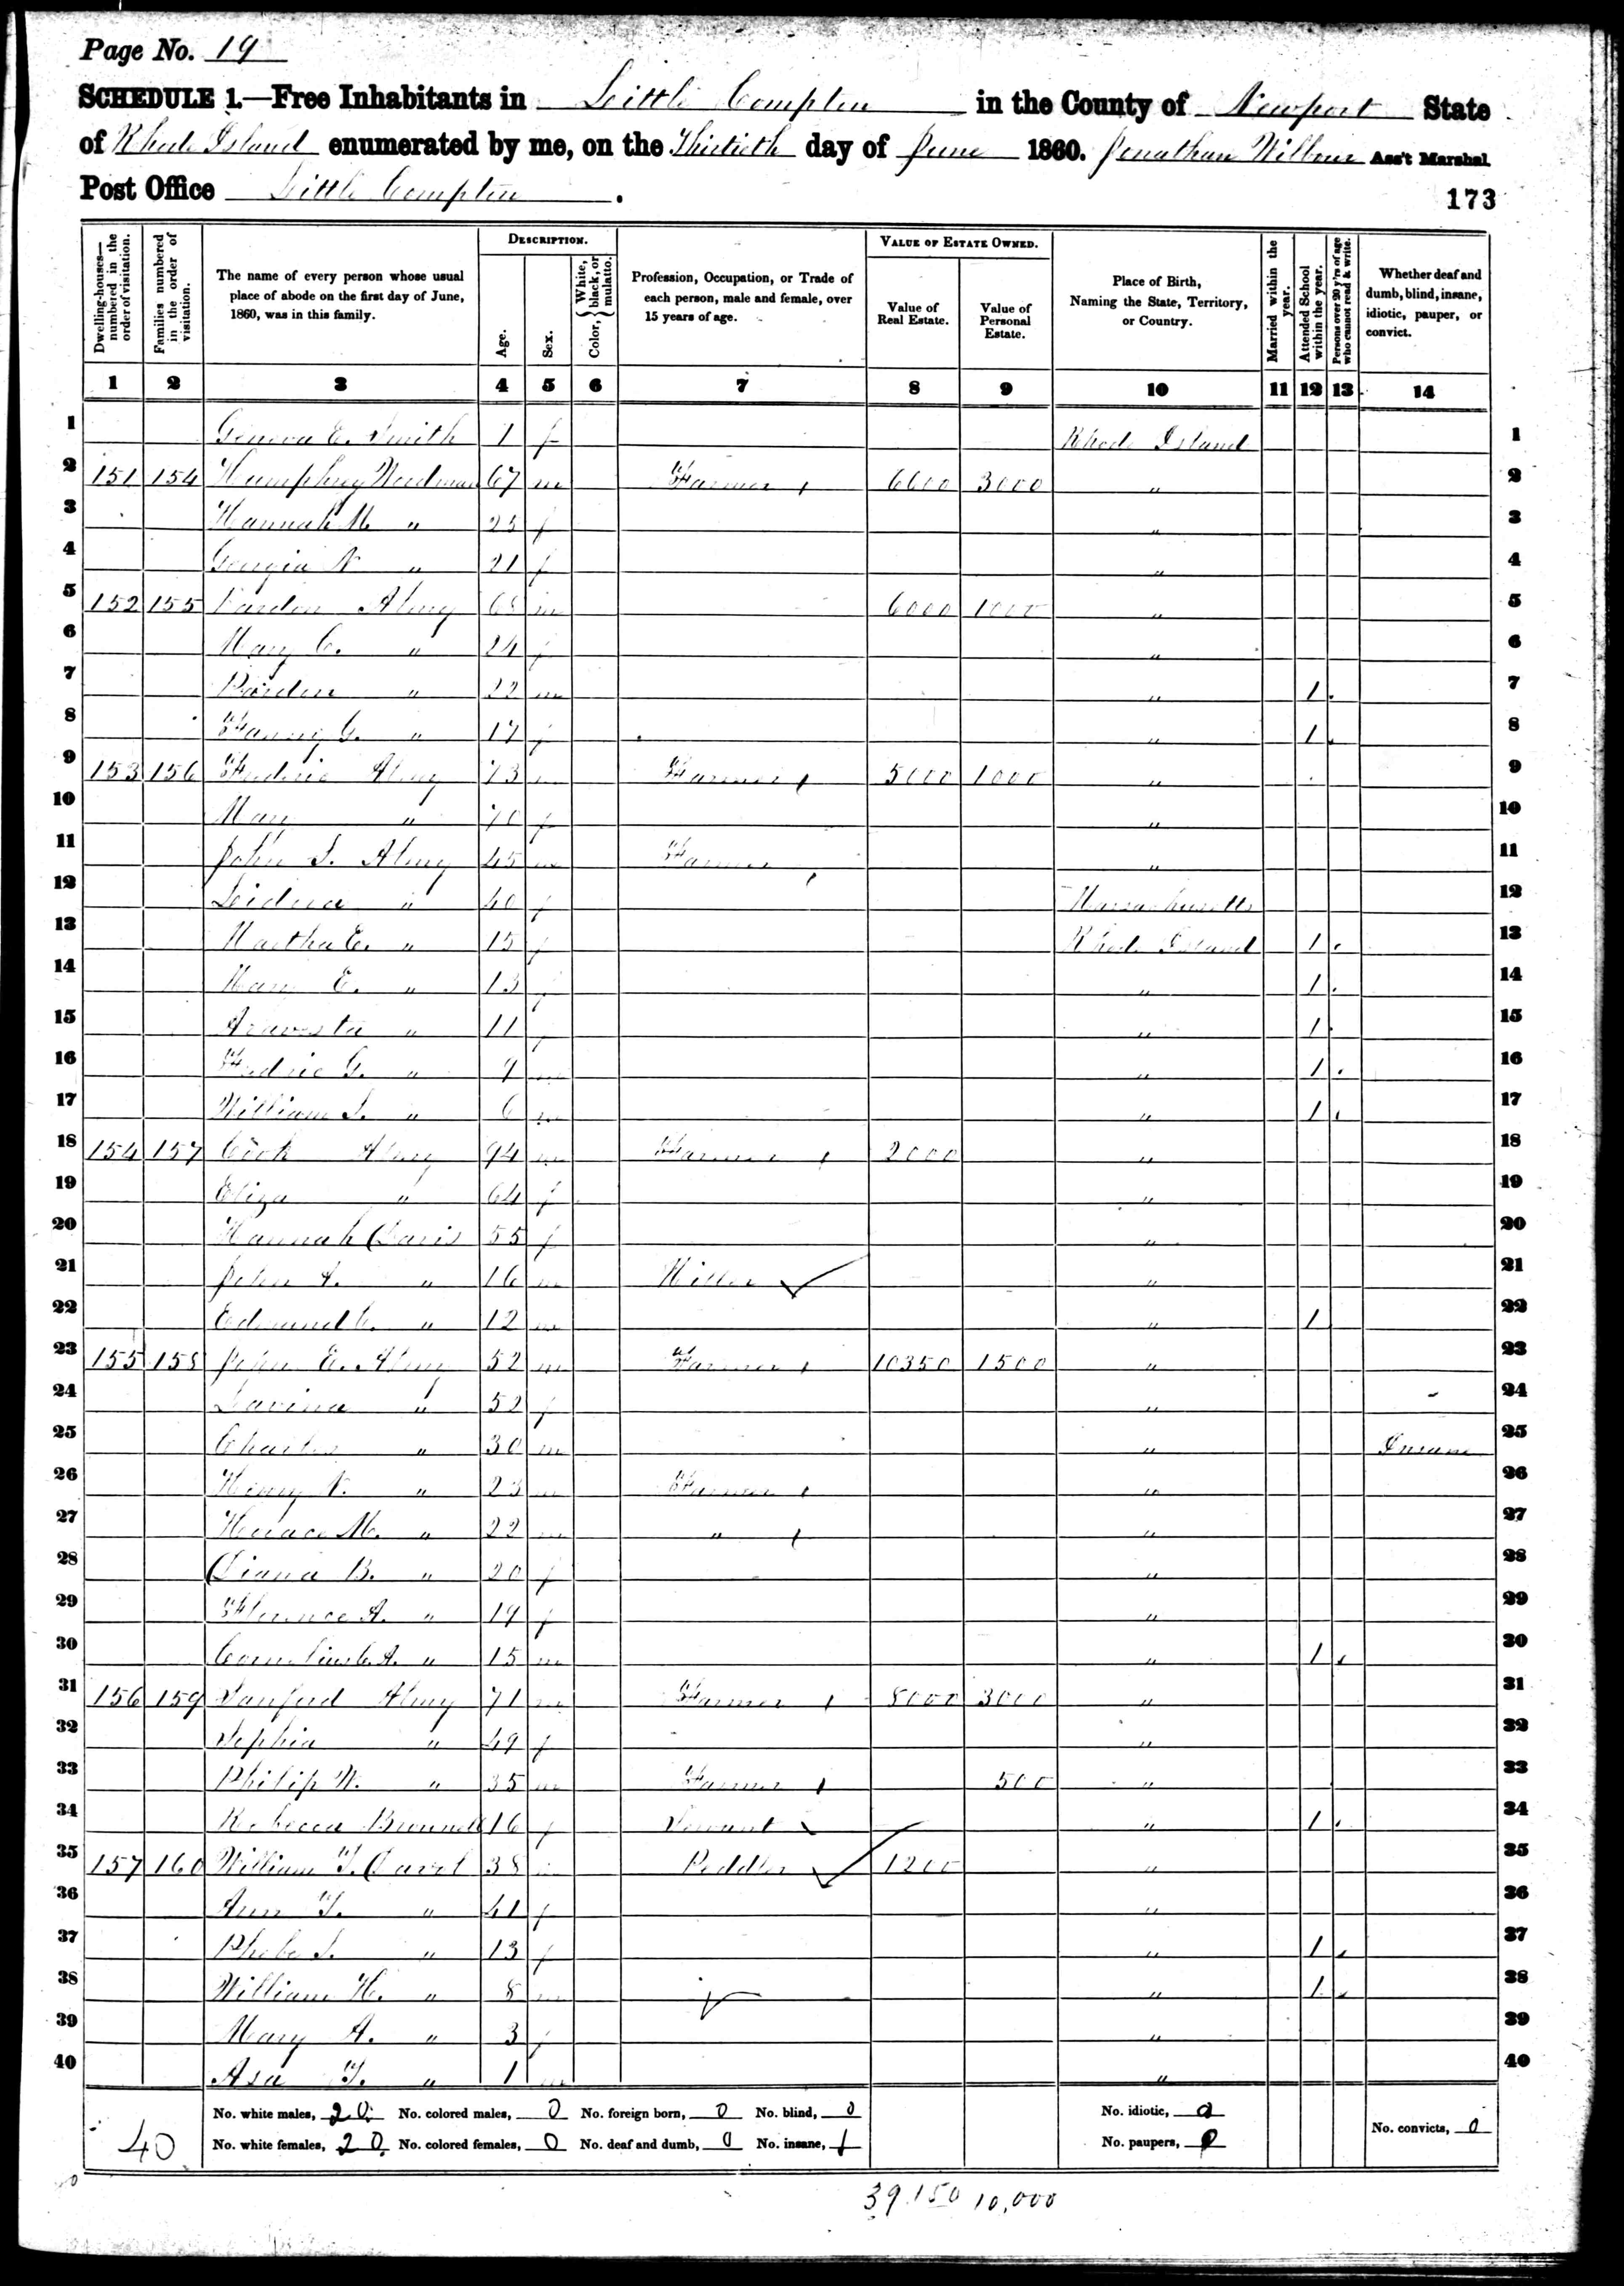 Page No. 19
SCHEDULE 1.—Free Inhabitants in Little Compton in the County of Newport State
of Rhode Island enumerated by me, on the Thirtieth day of June 1860. Jonathan Wilbour Ass't Marshal
Post Office Little Compton . 173
Dwelling-houses—numbered in the order of visitation. Families numbered in the order of visitation. The name of every person whose usual place of abode on the first day of June, 1860, was in this family. DESCRIPTION. Age. Sex. Color, { White, black, or mulatto. Profession, Occupation, or Trade of each person, male and female, over 15 years of age. VALUE OF ESTATE OWNED. Value of Real Estate. Value of Personal Estate. Place of Birth, Naming the State, Territory, or Country. Married within the year. Attended School within the year. Persons over 20 y'rs of age who cannot read & write. Whether deaf and dumb, blind, insane, idiotic, pauper, or convict.
1 2 3 4 5 6 7 8 9 10 11 12 13 14
1 Geneva E. Smith 1 f Rhode Island 1
2 151 154 Humphrey Woodman 67 m Farmer 6600 3000 " 2
3 Hannah M. " 25 f " 3
4 Georgia " 21 f " 4
5 152 155 Pardon Almy 68 m 6000 1000 " 5
6 Mary C. " 24 f " 6
7 Pardon " 22 m " 1 7
8 Fanny G. " 17 f " 1 8
9 153 156 Fredric Almy 73 m Farmer 5000 1000 " 9
10 Mary " 70 f " 10
11 John S. Almy 45 m Farmer " 11
12 " 40 f Massachusetts 12
13 Martha E. " 15 f Rhode Island 1 13
14 Mary E. " 13 f " 1 14
15 " 11 f " 1 15
16 Fredric G. " 9 m " 1 16
17 William S. " 6 m " 1 17
18 154 157 Cook Almy 94 m Farmer 2000 " 18
19 Eliza " 64 f " 19
20 Hannah Davis 55 f " 20
21 John A. " 16 m " 21
22 Edmund C. " 12 m " 1 22
23 155 158 John E. Almy 52 m Farmer 10350 1500 " 23
24 Lavina " 52 f " 24
25 Charles " 30 m " Insane 25
26 Henry " 23 m Farmer " 26
27 Horace M. " 22 m " " 27
28 Diana B. " 20 f " 28
29 Florence A. " 19 f " 29
30 Cornelius C. A. " 15 m " 1 30
31 156 159 Sanford Almy 71 m Farmer 8000 3000 " 31
32 Sophia " 49 f " 32
33 Philip W. " 35 m Farmer 500 " 33
34 Rebecca Brownell 16 f Servant " 1 34
35 157 160 William T. Davol 38 m Peddler 1200 " 35
36 Ann T. " 41 f " 36
37 Phebe S. " 13 f " 1 37
38 William H. " 8 m " 1 38
39 Mary A. " 3 f " 39
40 Asa T. " 1 m " 40
No. white males, 20 No. colored males, 0 No. foreign born, 0 No. blind, 0 No. idiotic, 0
40 No. white females, 20 No. colored females, 0 No. deaf and dumb, 0 No. insane, 1 No. paupers, 0 No. convicts, 0
39.150 10,000